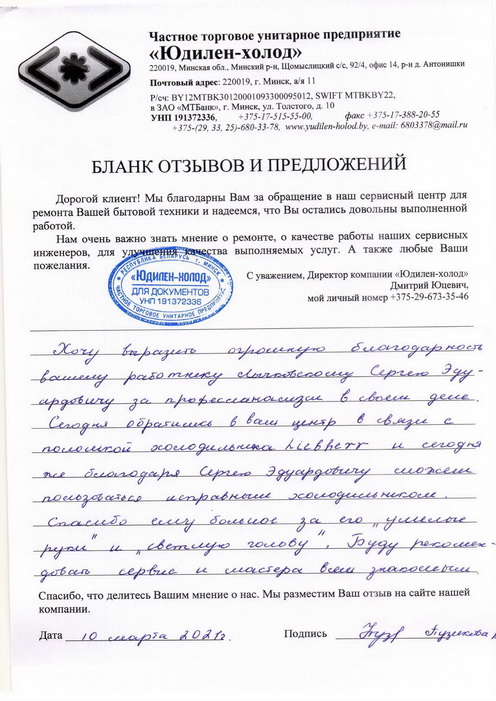 Частное торговое унитарное предприятие
«Юдилен-холод»
220019, Минская обл., Минский р-н, Щомыслицкий с/с, 92/4, офис 14, р-н д. Антонишки
Почтовый адрес: 220019, г. Минск, а/я 11
Р/сч: BY12MTBK30120001093300095012, SWIFT MTBKBY22,
в ЗАО «МТБанк», г. Минск, ул. Толстого, д. 10
УНП 191372336, +375-17-515-55-00, факс +375-17-388-20-55
+375-(29, 33, 25)-680-33-78, www.yudilen-holod.by, e-mail: 6803378@mail.ru
БЛАНК ОТЗЫВОВ И ПРЕДЛОЖЕНИЙ
Дорогой клиент! Мы благодарны Вам за обращение в наш сервисный центр для
ремонта Вашей бытовой техники и надеемся, что Вы остались довольны выполненной
работой.
Нам очень важно знать мнение о ремонте, о качестве работы наших сервисных
инженеров, для улучшения качества выполняемых услуг. А также любые Ваши
пожелания.
РЕСПУБЛИКА БЕЛАРУСЬ г. МИНСК
«ЮДИЛЕН-ХОЛОД»
ДЛЯ ДОКУМЕНТОВ
УНП 191372336
ЧАСТНОЕ ТОРГОВОЕ УНИТАРНОЕ ПРЕДПРИЯТИЕ
С уважением, Директор компании «Юдилен-холод»
Дмитрий Юцевич,
мой личный номер +375-29-673-35-46
Хочу выразить огромную благодарность
вашему работнику Сергею Эду-
ардовичу за в своем деле.
Сегодня обратились в ваш центр в связи с
поломкой холодильника и сегодня
же благодаря Сергею Эдуардовичу можем
пользоваться исправным холодильником.
Спасибо ему большое за его „умелые
руки" и „светлую голову". Буду рекомен-
довать сервис и мастера всем знакомым
Спасибо, что делитесь Вашим мнение о нас. Мы разместим Ваш отзыв на сайте нашей
компании.
Дата 10 марта 2021г. Подпись